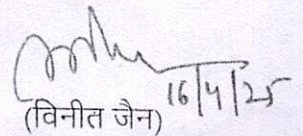 16/4/25
(विनीत जैन)